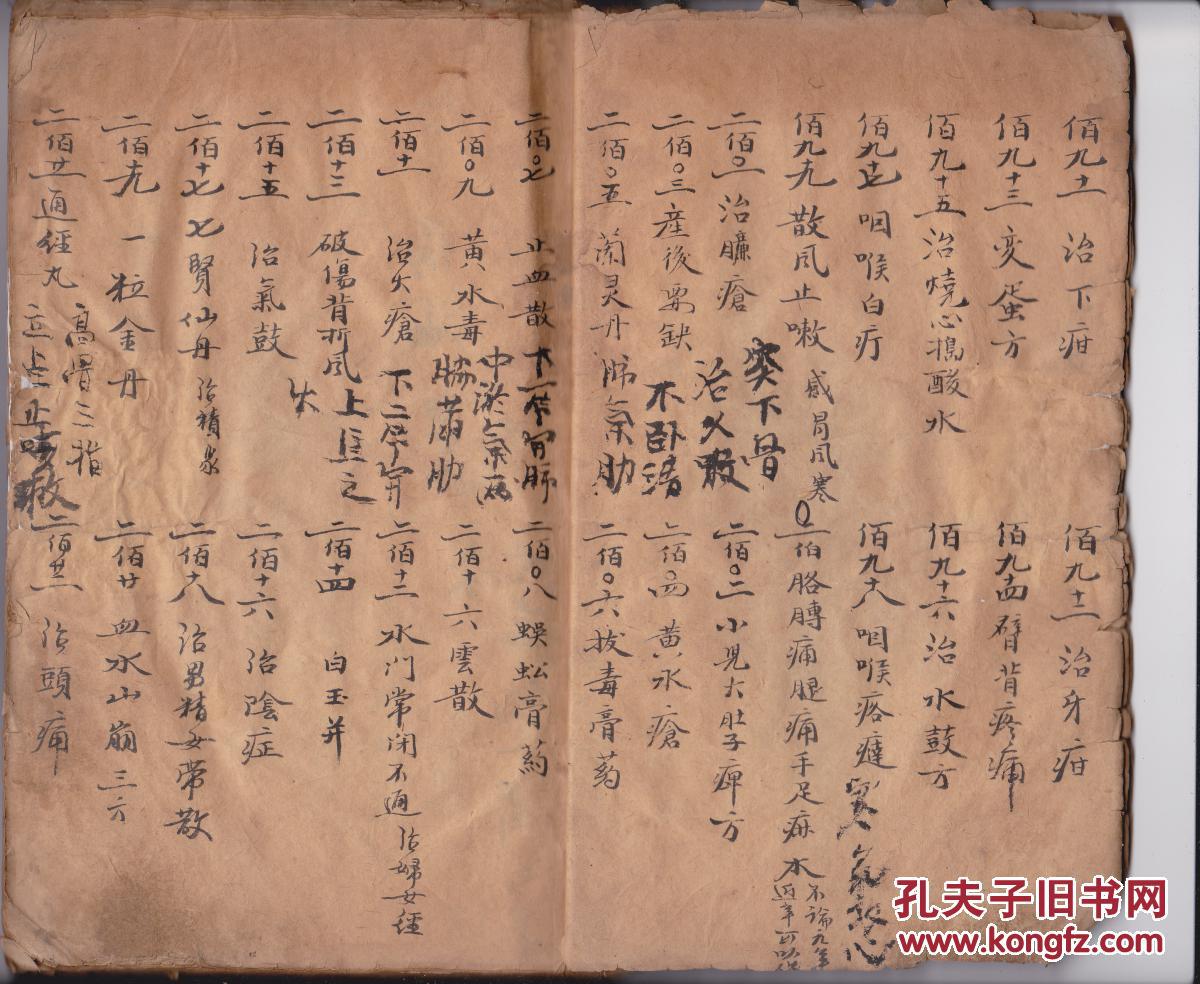 佰九十一 治下疳
佰九十二 治牙疳
佰九十三 变蛋方
佰九十四 臂背疼痛
佰九十五 治燒心搗酸水
佰九十六 治水鼓方
佰九十七 咽喉白疔
佰九十八 咽喉疙瘩
佰九十九 散风止嗽 感冒风寒
二佰 胳膊痛腿痛手足麻木 不論九年
二佰〇一 治臁瘡
二佰〇二 小児大肚子痺方
二佰〇三 產後要缺
二佰〇四 黄水瘡
二佰〇五 蘭灵丹
二佰〇六 拔毒膏药
突下骨
治久嗽
不卧
二佰〇七 止血散
二佰〇八 蜈蚣膏药
二佰〇九 黄水毒
二佰十 六雲散
二佰十一 治火瘡
二佰十二 水门常闭不通 治婦女經
二佰十三 破傷背折风 上焦之火
二佰十四 白玉并
二佰十五 治氣鼓
二佰十六 治陰症
二佰十七 七賢仙丹 治積聚
二佰十八 治男精女带散
二佰十九 一粒金丹
二佰廿 血水山崩三方
二佰廿一 通經丸
二佰廿二 治頭痛
高骨三指
孔夫子旧书网
www.kongfz.com